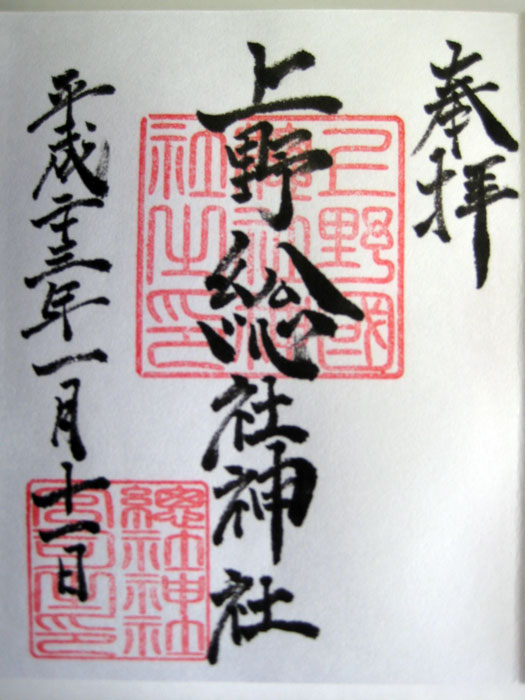 奉拝
上野総社神社
上野國
総社神
社之印
平成二十三年一月十一日
總社神社
宮司之印